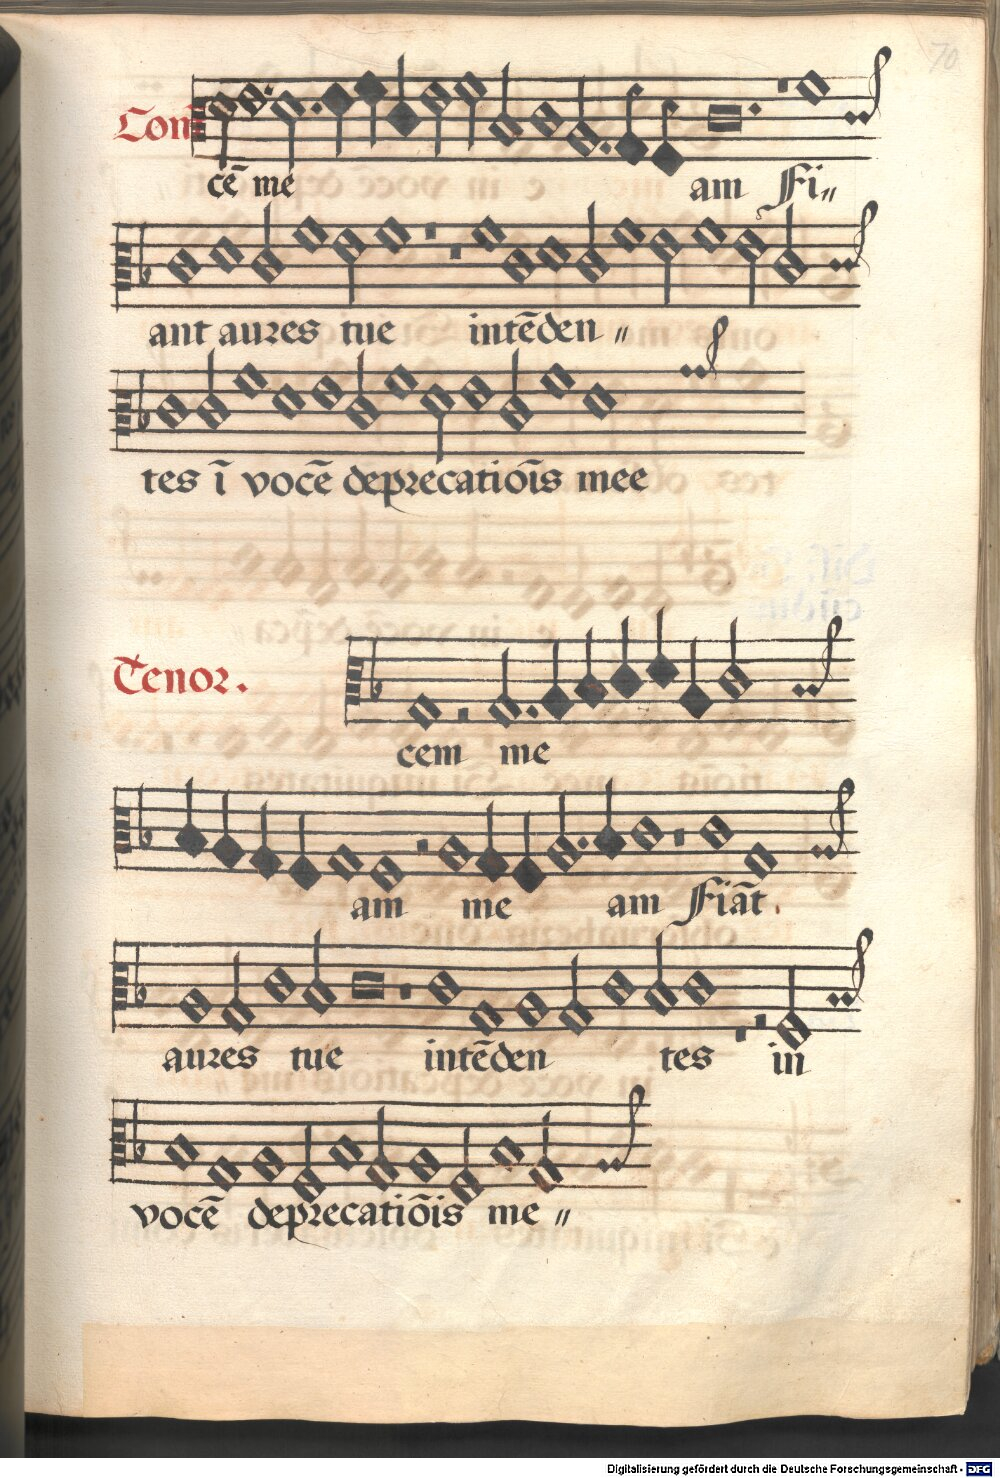 70
Con̄
cē me am Fi〃
ant aures tue intēden〃
tes ī vocē deprecatiōīs mee
Tenor.
cem me
am me am Fiāt.
aures tue intēden tes in
vocē deprecatiōis me〃
Digitalisierung gefördert durch die Deutsche Forschungsgemeinschaft - DFG